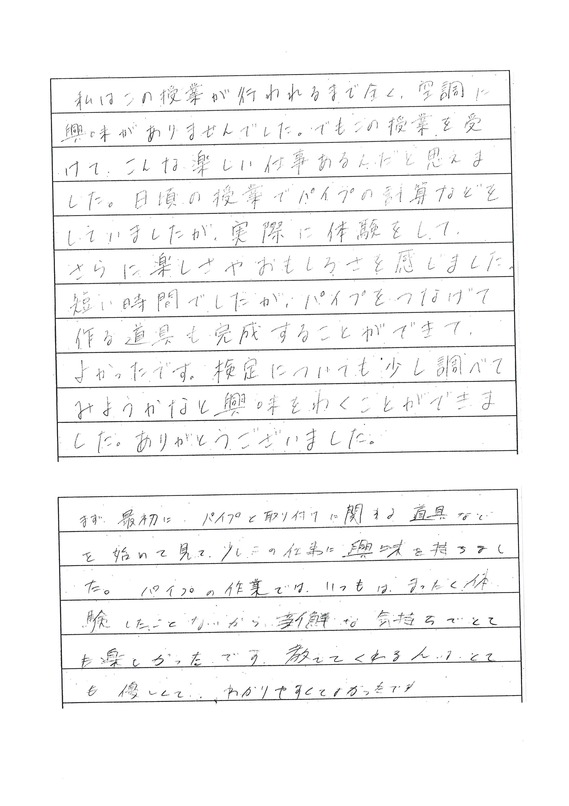 私はこの授業が行われるまで全く、空調に
興味がありませんでした。でもこの授業を受
けて、こんな楽しい仕事あるんだと思えま
した。日頃の授業でパイプの計算などを
していましたが、実際に体験をして、
さらに楽しさやおもしろさを感じました。
短い時間でしたが、パイプをつなげて
作る道具も完成することができて、
よかったです。検定についても少し調べて
みようかなと興味をわくことができま
した。ありがとうございました。
まず、最初に、パイプと取り付けに関する道具など
を始めて見て、少しこの仕事に興味を持ちまし
た。パイプの作業では、いつもは、まったく体
験したことないから、新鮮な気持ちでとて
も楽しかったです。教えてくれる人もとて
も優しくて、わかりやすくてよかったです